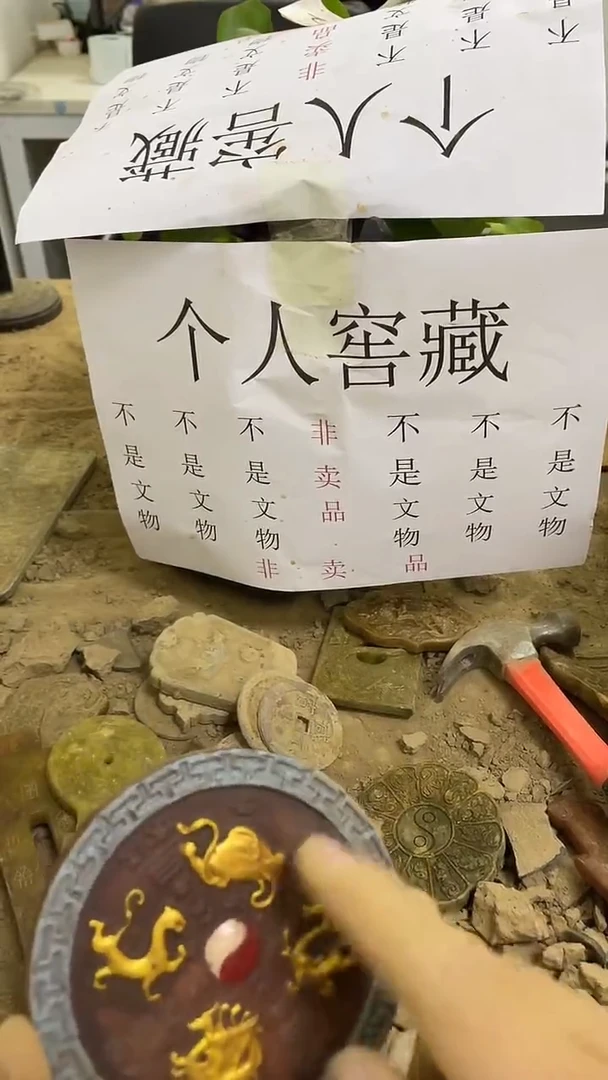 个人窖藏
不是
不是
不是文
非卖品
不是文物
不是文物
不是文物
个人窖藏
不是文物
不是文物
不是文物
非卖品
不是文物
不是文物
不是文物
非卖品